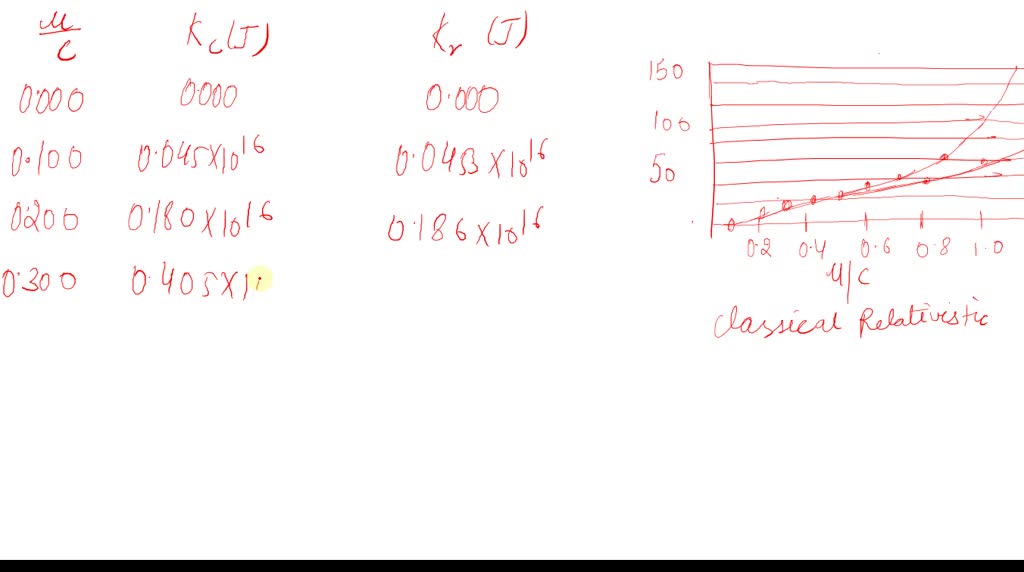 u/c Kc(J) Kr (J)
0.000 0.000 0.000
0.100 0.045×10¹⁶ 0.0453×10¹⁶
0.200 0.180×10¹⁶ 0.186×10¹⁶
0.300 0.405×1
150
100
50
0.2 0.4 0.6 0.8 1.0
u/c
Classical Relativistic